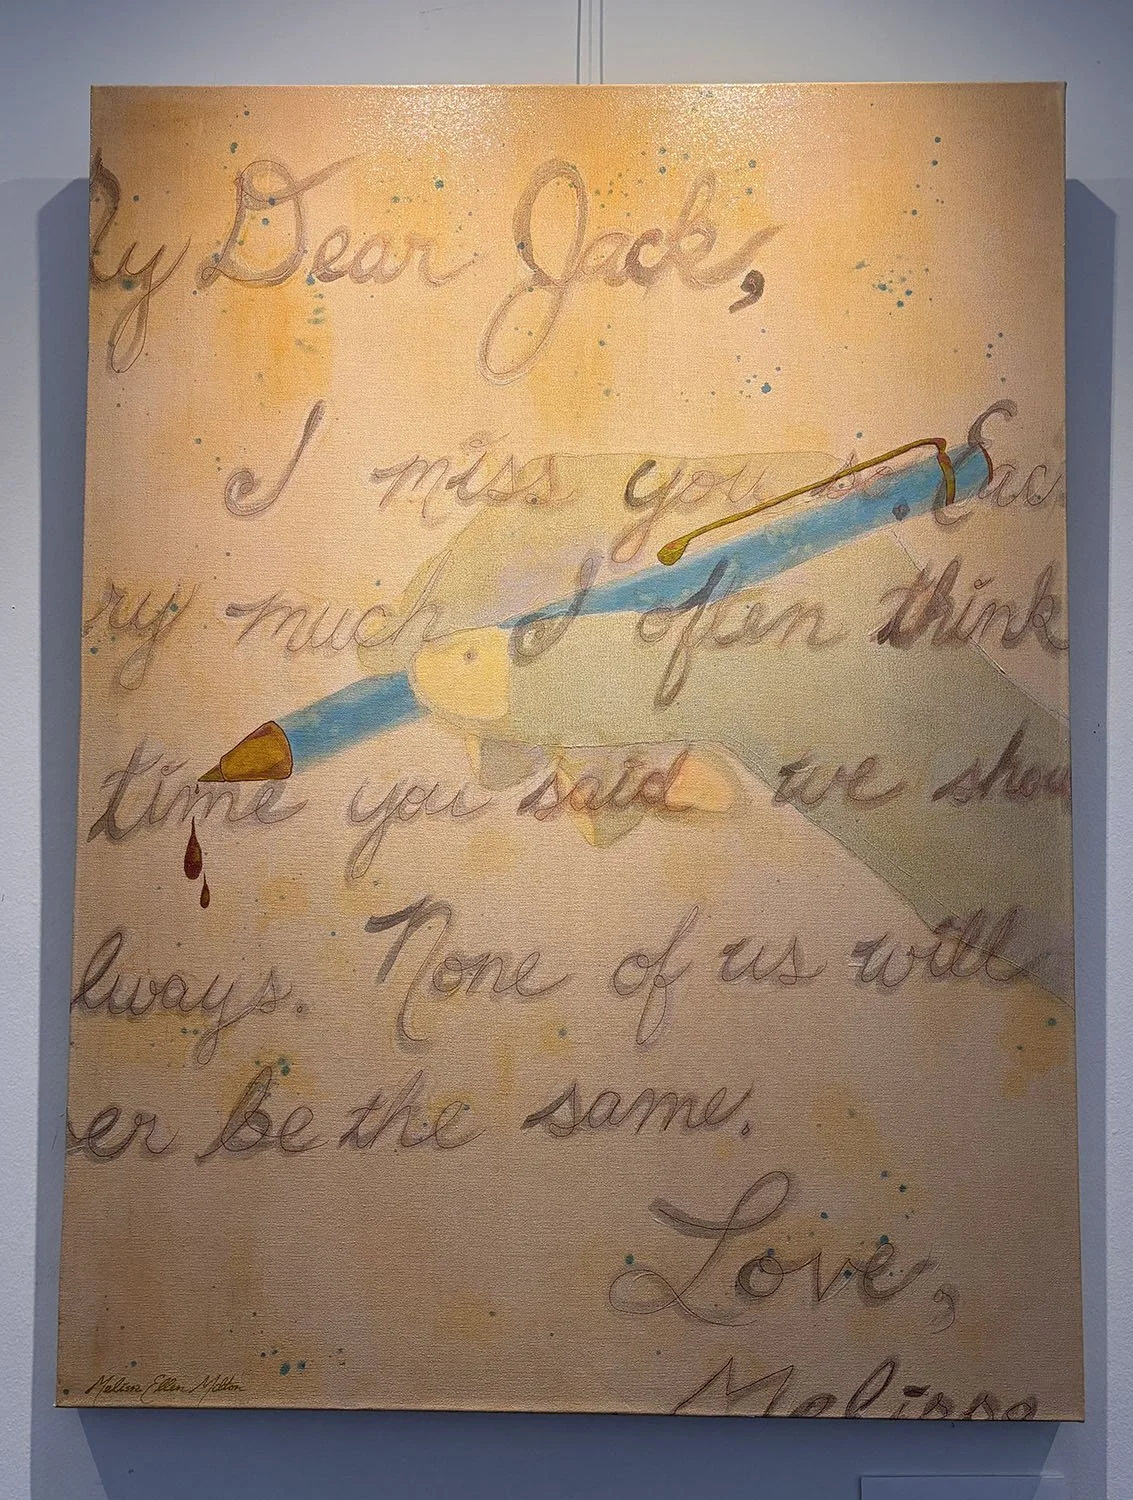 y Dear Jack,
I miss you so. Eac
ry much I often think
time you said we shou
lways. None of us will
er be the same.
Love,
Melissa
Melissa Ellen Molton